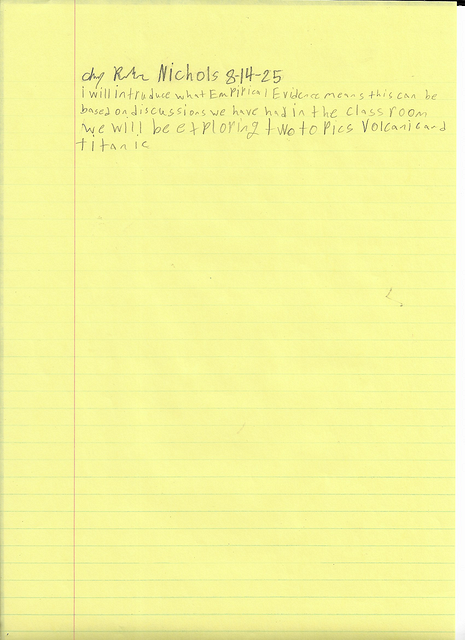 Nichols 8-14-25
i will introduce what Empirical Evidence means this can be
based on discussions we have had in the class room
we will be exploring two topics Volcanic and
titanic